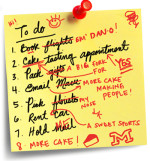 Hi!
To do
1. Book flights OH! DAN-O!
2. Cake tasting appointment
3. Pack gifts A BIG FORK YES
4. Email Macu MORE CAKE
MAKING PEOPLE!
5. Pink florals MY NOSE
6. Rent car
7. Hold Mail A SWEET SPORTS
8. MORE CAKE! M